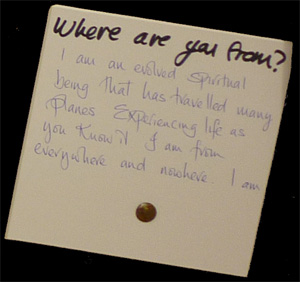 Where are you from?
I am an evolved spiritual
being that has travelled many
planes Experiencing life as
you Know it I am from
everywhere and nowhere I am